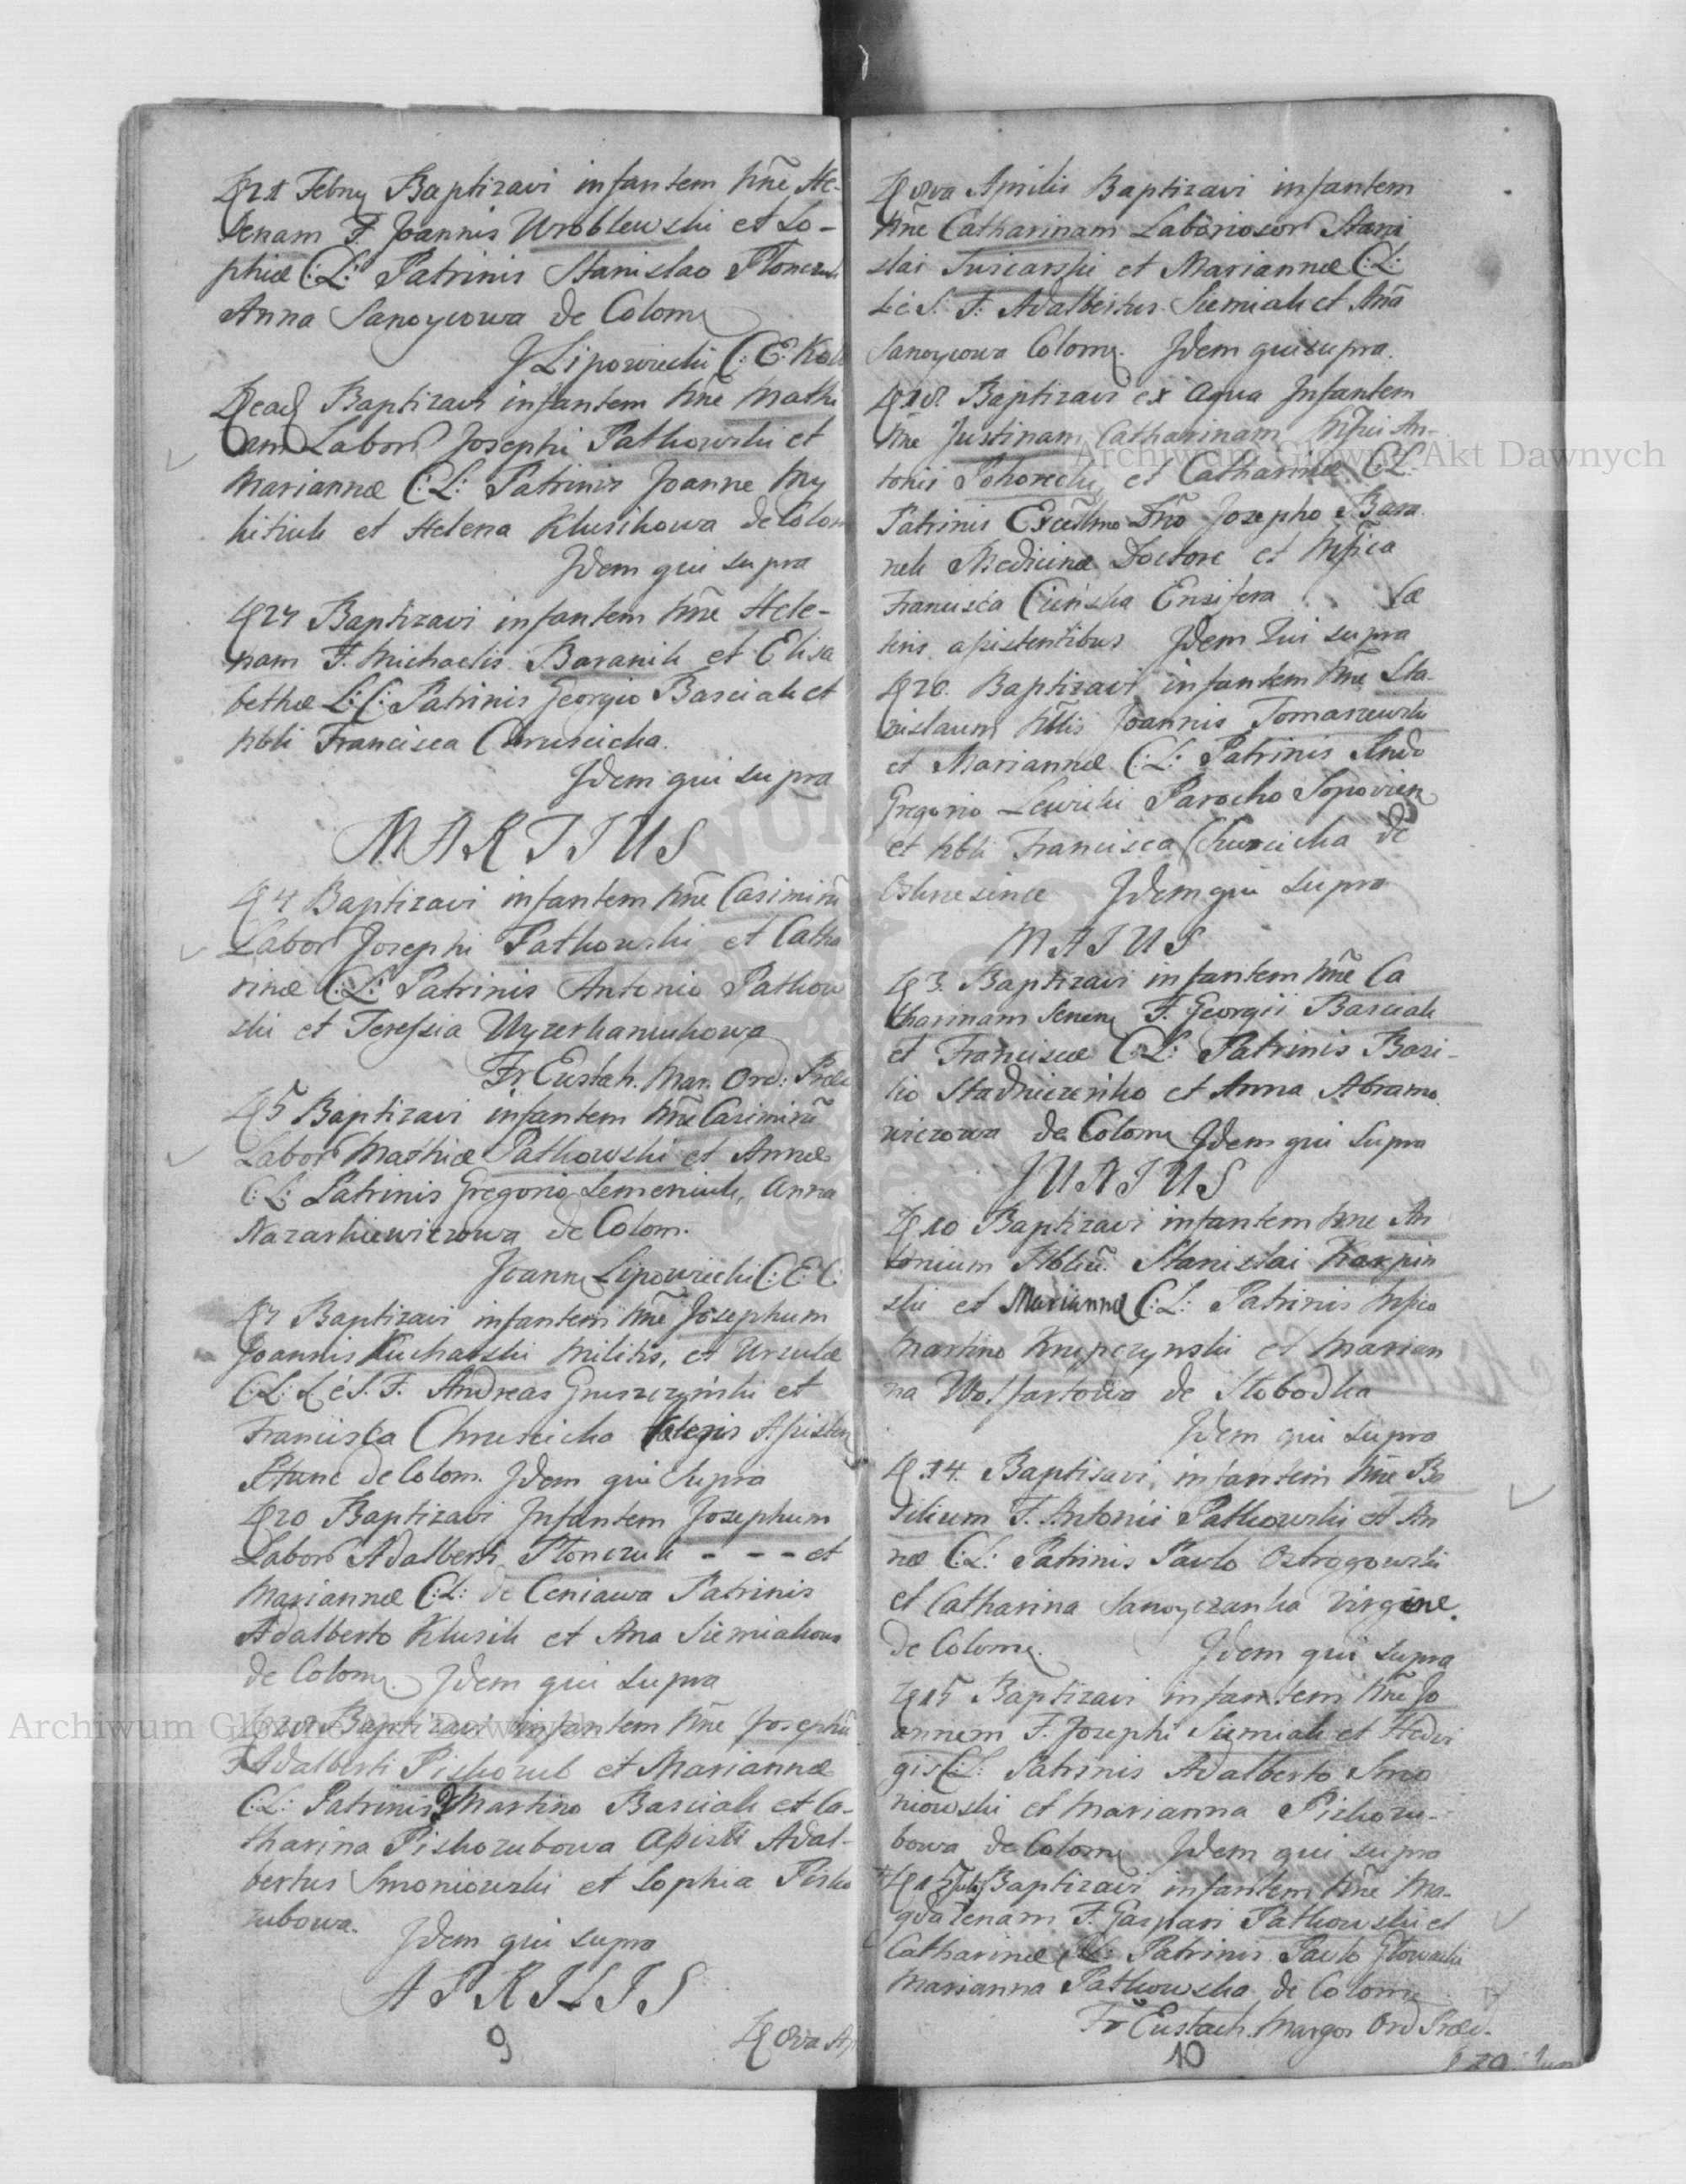 21 Febry Baptizavi infantem Nne He-
lenam F. Joannis Wroblewski et So-
phiæ C: L: Patrinis Stanislao Płonczuk
Anna Sanoycowa de Colom
J Lipowiecki C: E: Kol
ead Baptizavi infantem Nne Mathi
am Labor Josephi Patkowski et
Mariannæ C: L: Patrinis Joanne My
kitiuk et Helena Klusikowa de Colom
Idem qui supra
27 Baptizavi infantem Nne Hele-
nam F. Michaelis Baranik et Elisa
bethæ L: C: Patrinis Georgio Basciak et
Nbli Francisca Chruscicka.
Idem qui supra
MARTIUS
4 Baptizavi infantem Nne Casimirũ
Labor Josephi Patkowski et Catha
rinæ C: L: Patrinis Antonio Patkow
ski et Teressia
Fr Eustach. Mar. Ord: Præd
5 Baptizavi infantem Nne Casimirũ
Labor Mathiæ Patkowski et Annæ
C: L: Patrinis Gregorio Semeniuk, Anna
Nazarkiewiczowa de Colom.
Joann Lipowiecki C: E: C:
Baptizavi infantem Nne Josephum
Joannis Kucharski Militis, et Ursulæ
C: L: L è S. F. Andreas Gruszczyński et
Francisca Chruscicka Assisten
de Colom. Idem qui Supra
20 Baptizavi Infantem Josephum
Labor Adalberti Płonczuk - - - et
Mariannæ C: L: de Ceniawa Patrinis
Adalberto Klusik et Ana Siemiakowa
de Colom. Idem qui supra
Baptizavi infantem Nne Josephũ
F Adalberti Piskozub et Mariannæ
C: L: Patrinis Martino Basciak et Ca-
tharina Piskozubowa Assisti Adal-
bertus Smoniowski et Sophia Pisko
zubowa.
Idem qui supra
APRILIS
9
8va Ap
8va Aprilis Baptizavi infantem
Nne Catharinam Laborioсor Stani
slai et Mariannæ C: L:
L è S. F: Adalbertus Siemiak et Ana
Sanoycowa Colom. Idem qui supra.
18. Baptizavi ex Aqua Infantem
Nne Justinam Catharinam An-
tonii Pohorecki et Catharinæ C: L:
Patrinis Josepho Bara
nek Medicinæ Doctore et
Francisca Cieńska Ensifera Cæ
teris assistentibus Idem Qui supra
20. Baptizavi infantem Nne Sta-
nislaum Nblis Joannis Tomaszewski
et Mariannæ C: L: Patrinis Rndo
Gregorio Lewicki Parocho Sopovien
et Nbli Francisca Chruscicka de
Idem qui supra
MAIUS
3. Baptizavi infantem Nne Ca
tharinam F. Georgii Basciak
et Franciscæ C: L: Patrinis Basi-
lio Stadniczenko et Anna Abramo
wiczowa de Colom Idem qui supra
JUNIUS
10 Baptizavi infantem Nne An
tonium Stanislai Karpin
ski et Mariannæ C: L: Patrinis
Martino Krupczynski et Marian
na Wolfartowa de Słobodka
Idem qui supra
14. Baptisavi infantem Nne Ba
silium F. Antonii Patkowski et An
næ C: L: Patrinis Paulo Ostrogowski
et Catharina Sanoyczanka Virgine.
de Colom. Idem qui supra
15 Baptizavi infantem Nne Jo
annem F. Josephi Siemiak et Hedvi
gis C: L: Patrinis Adalberto Smo
niowski et Marianna Piskozu-
bowa de Colom Idem qui supra
15 Baptizavi infantem Nne Ma-
gdalenam F. Gaspari Patkowski et
Catharinæ C: L: Patrinis Paulo Głowacki
Marianna Patkowska de Colom
Fr Eustach. Margos Ord Præd.
10
20 Jun
Archiwum Główne Akt Dawnych
Archiwum Główne Akt Dawnych